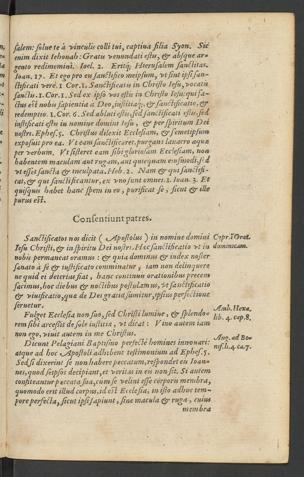 salem: solue te à vinculis colli tui, captiua filia Syon. Sic
enim dixit Iehouah: Gratis venundati estu, & absque ar-
gento redimemini. Ioel. 2. Eritq; Hierusalem sanctitas.
Ioan. 17. Et ego pro eis sanctifico meipsum, vt sint ipsi san-
ctificati verè. 1 Cor. 1. Sanctificatis in Christo Iesu, vocatis
sanctis. 1. Cor. 1. Sed ex ipso vos estis in Christo Iesu: qui fa-
ctus est nobis sapientia à Deo, iustitiaq;, & sanctificatio, &
redemptio. 1. Cor. 6. Sed abluti estis, sed sanctificati estis, sed
iustificati estis in nomine domini Iesu, & per spiritum Dei
nostri. Ephes. 5. Christus dilexit Ecclesiam, & semetipsum
exposuit pro ea. Vt eam sanctificaret, purgans lauacro aquæ
per verbum. Vt sisteret eam sibi gloriosam Ecclesiam, non
habentem maculam aut rugam, aut quicquam eiusmodi, sed
vt esset sancta & inculpata. Heb. 2. Nam & qui sanctifi-
cat, & qui sanctificantur, ex vno sunt omnes. 1. Ioan. 3. Et
quisquis habet hanc spem in eo, purificat se, sicut & ille
purus est.
Consentiunt patres.
Sanctificatos nos dicit (Apostolus) in nomine domini
Iesu Christi, & in spiritu Dei nostri. Hæc sanctificatio vt in
nobis permaneat oramus: & quia dominus & iudex noster
sanato à se & iustificato comminatur, iam non delinquere
ne quid ei deterius fiat, hanc continuis orationibus precem
facimus, hoc diebus & noctibus postulamus, vt sanctificatio
& viuificatio, quæ de Dei gratia sumitur, ipsius perfectione
seruetur.
Cypr. Orat.
dominicam.
Fulget Ecclesia non suo, sed Christi lumine, & splendo-
rem sibi arcessit de sole iustitiæ, vt dicat: Viuo autem iam
non ego, viuit autem in me Christus.
Amb. Hexa.
lib. 4. cap. 8.
Dicunt Pelagiani Baptismo perfectè homines innouari:
atque ad hoc Apostoli adhibent testimonium ad Ephes. 5.
Sed si dixerint se non habere peccatum, respondet eis Ioan-
nes, quod seipsos decipiant, et veritas in eis non sit. Si autem
confiteantur peccata sua, cum se velint esse corporis membra,
quomodo erit illud corpus, id est Ecclesia, in isto adhuc tem-
pore perfecta, sicut ipsi sapiunt, sine macula & ruga, cuius
Aug. ad Bo-
nif. li. 4. ca. 7.
membra